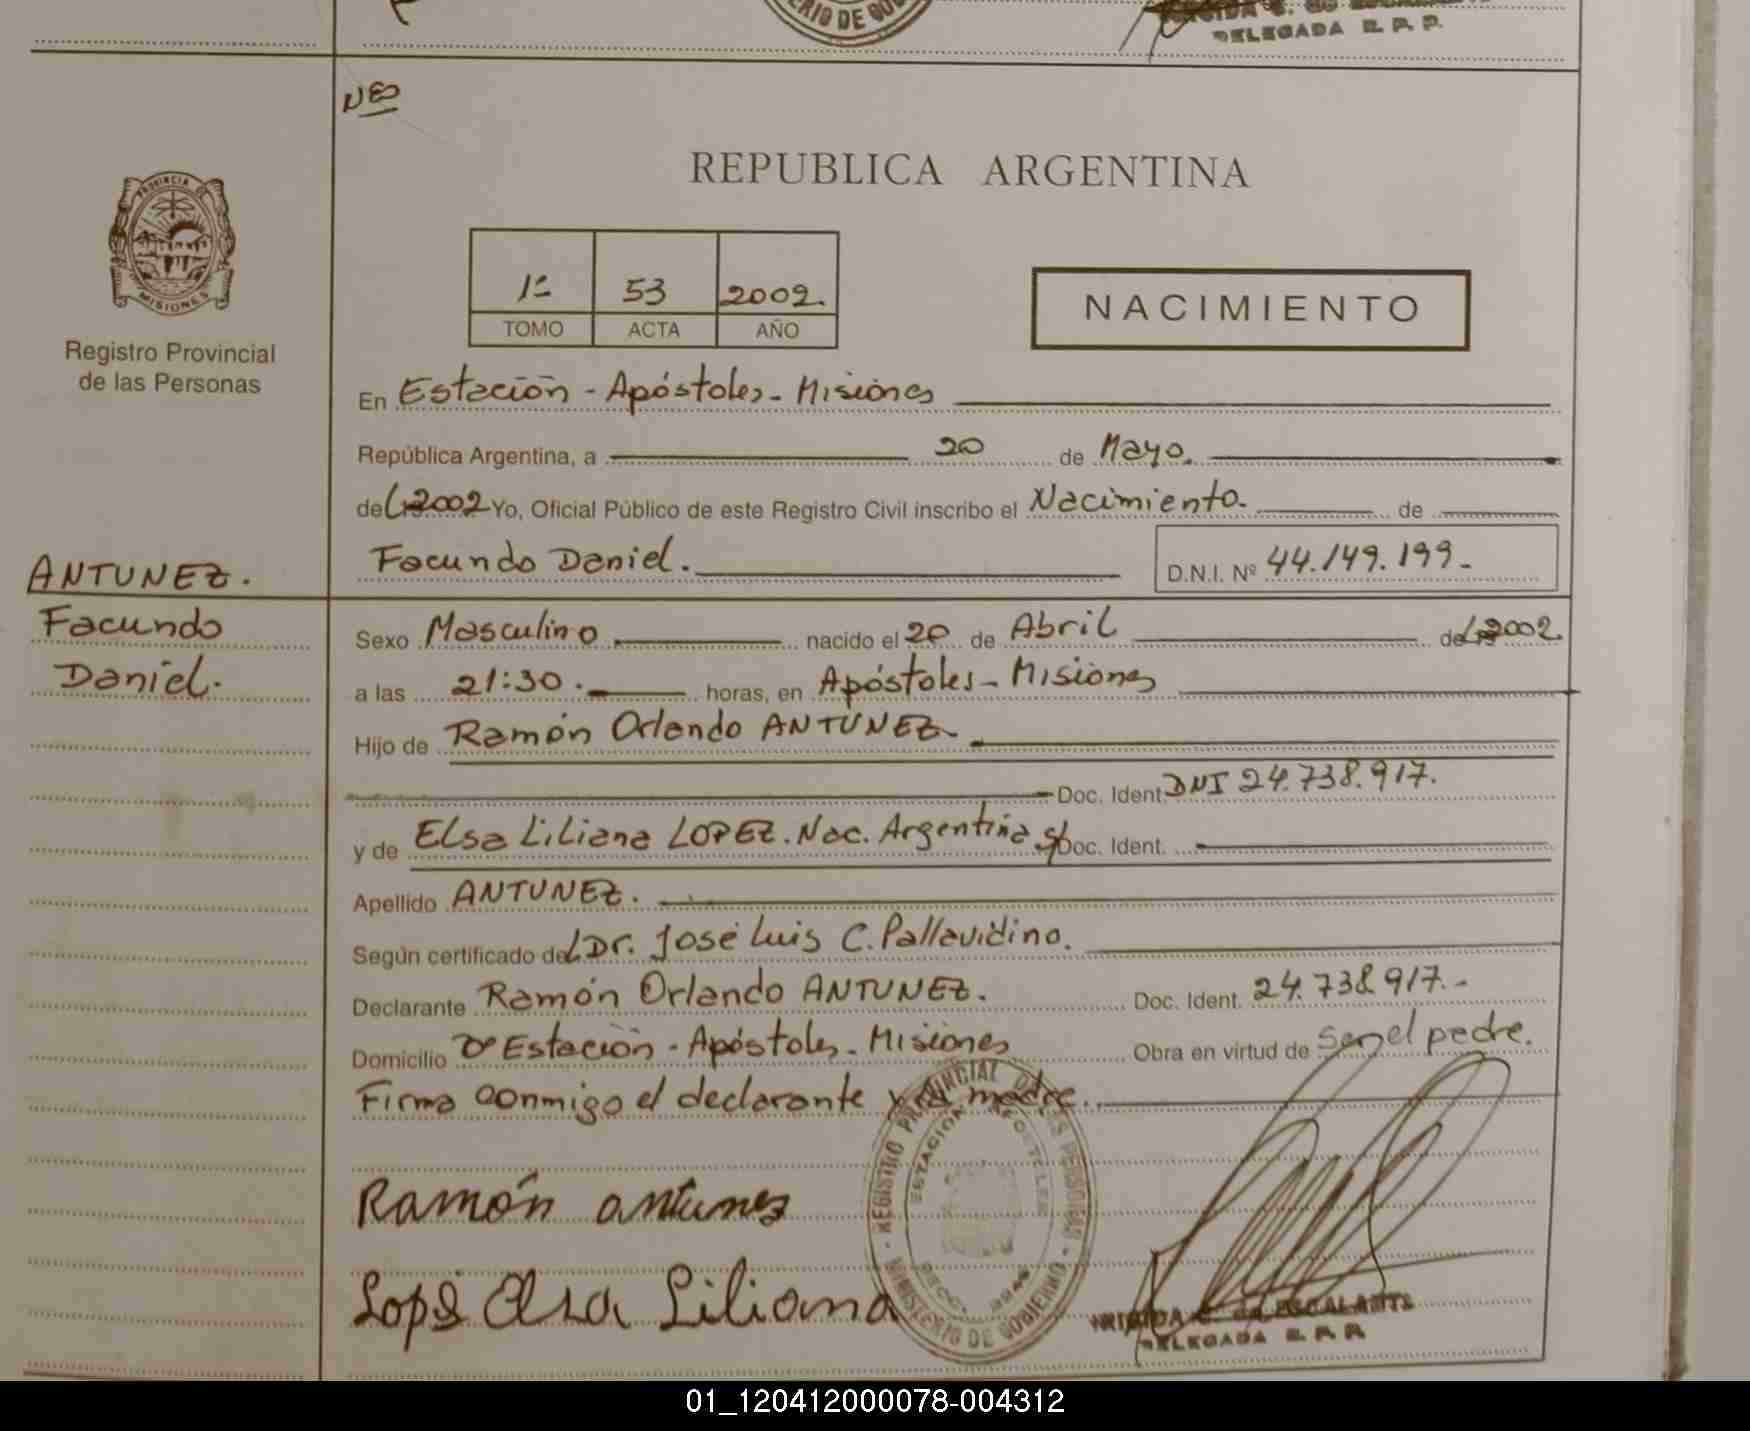 DELEGADA R. P. P.
NES
REPUBLICA ARGENTINA
PROVINCIA DE
MISIONES
Registro Provincial
de las Personas
1º 53 2002.
TOMO ACTA AÑO
NACIMIENTO
En Estación - Apóstoles - Misiones
República Argentina, a 20 de Mayo.
del 2002 Yo, Oficial Público de este Registro Civil inscribo el Nacimiento. de
Facundo Daniel. D.N.I. Nº 44.149.199.-
ANTUNEZ.
Facundo
Daniel.
Sexo Masculino nacido el 20 de Abril del 2002
a las 21:30. horas, en Apóstoles - Misiones
Hijo de Ramón Orlando ANTUNEZ.
Doc. Ident. DNI 24.738.917.
y de Elsa Liliana LOPEZ. Nac. Argentina s/Doc. Ident.
Apellido ANTUNEZ.
Según certificado del Dr. José Luis C. Pallavidino.
Declarante Ramón Orlando ANTUNEZ. Doc. Ident. 24.738.917.-
Domicilio Dº Estación - Apóstoles - Misiones Obra en virtud de ser el padre.
Firma conmigo el declarante y la madre.
REGISTRO PROVINCIAL DE LAS PERSONAS
ESTACION APOSTOLES
MINISTERIO DE GOBIERNO
Ramón antunez
Lopez Elsa Liliana
DE ESCALANTE
DELEGADA R. P. P.
01_120412000078-004312